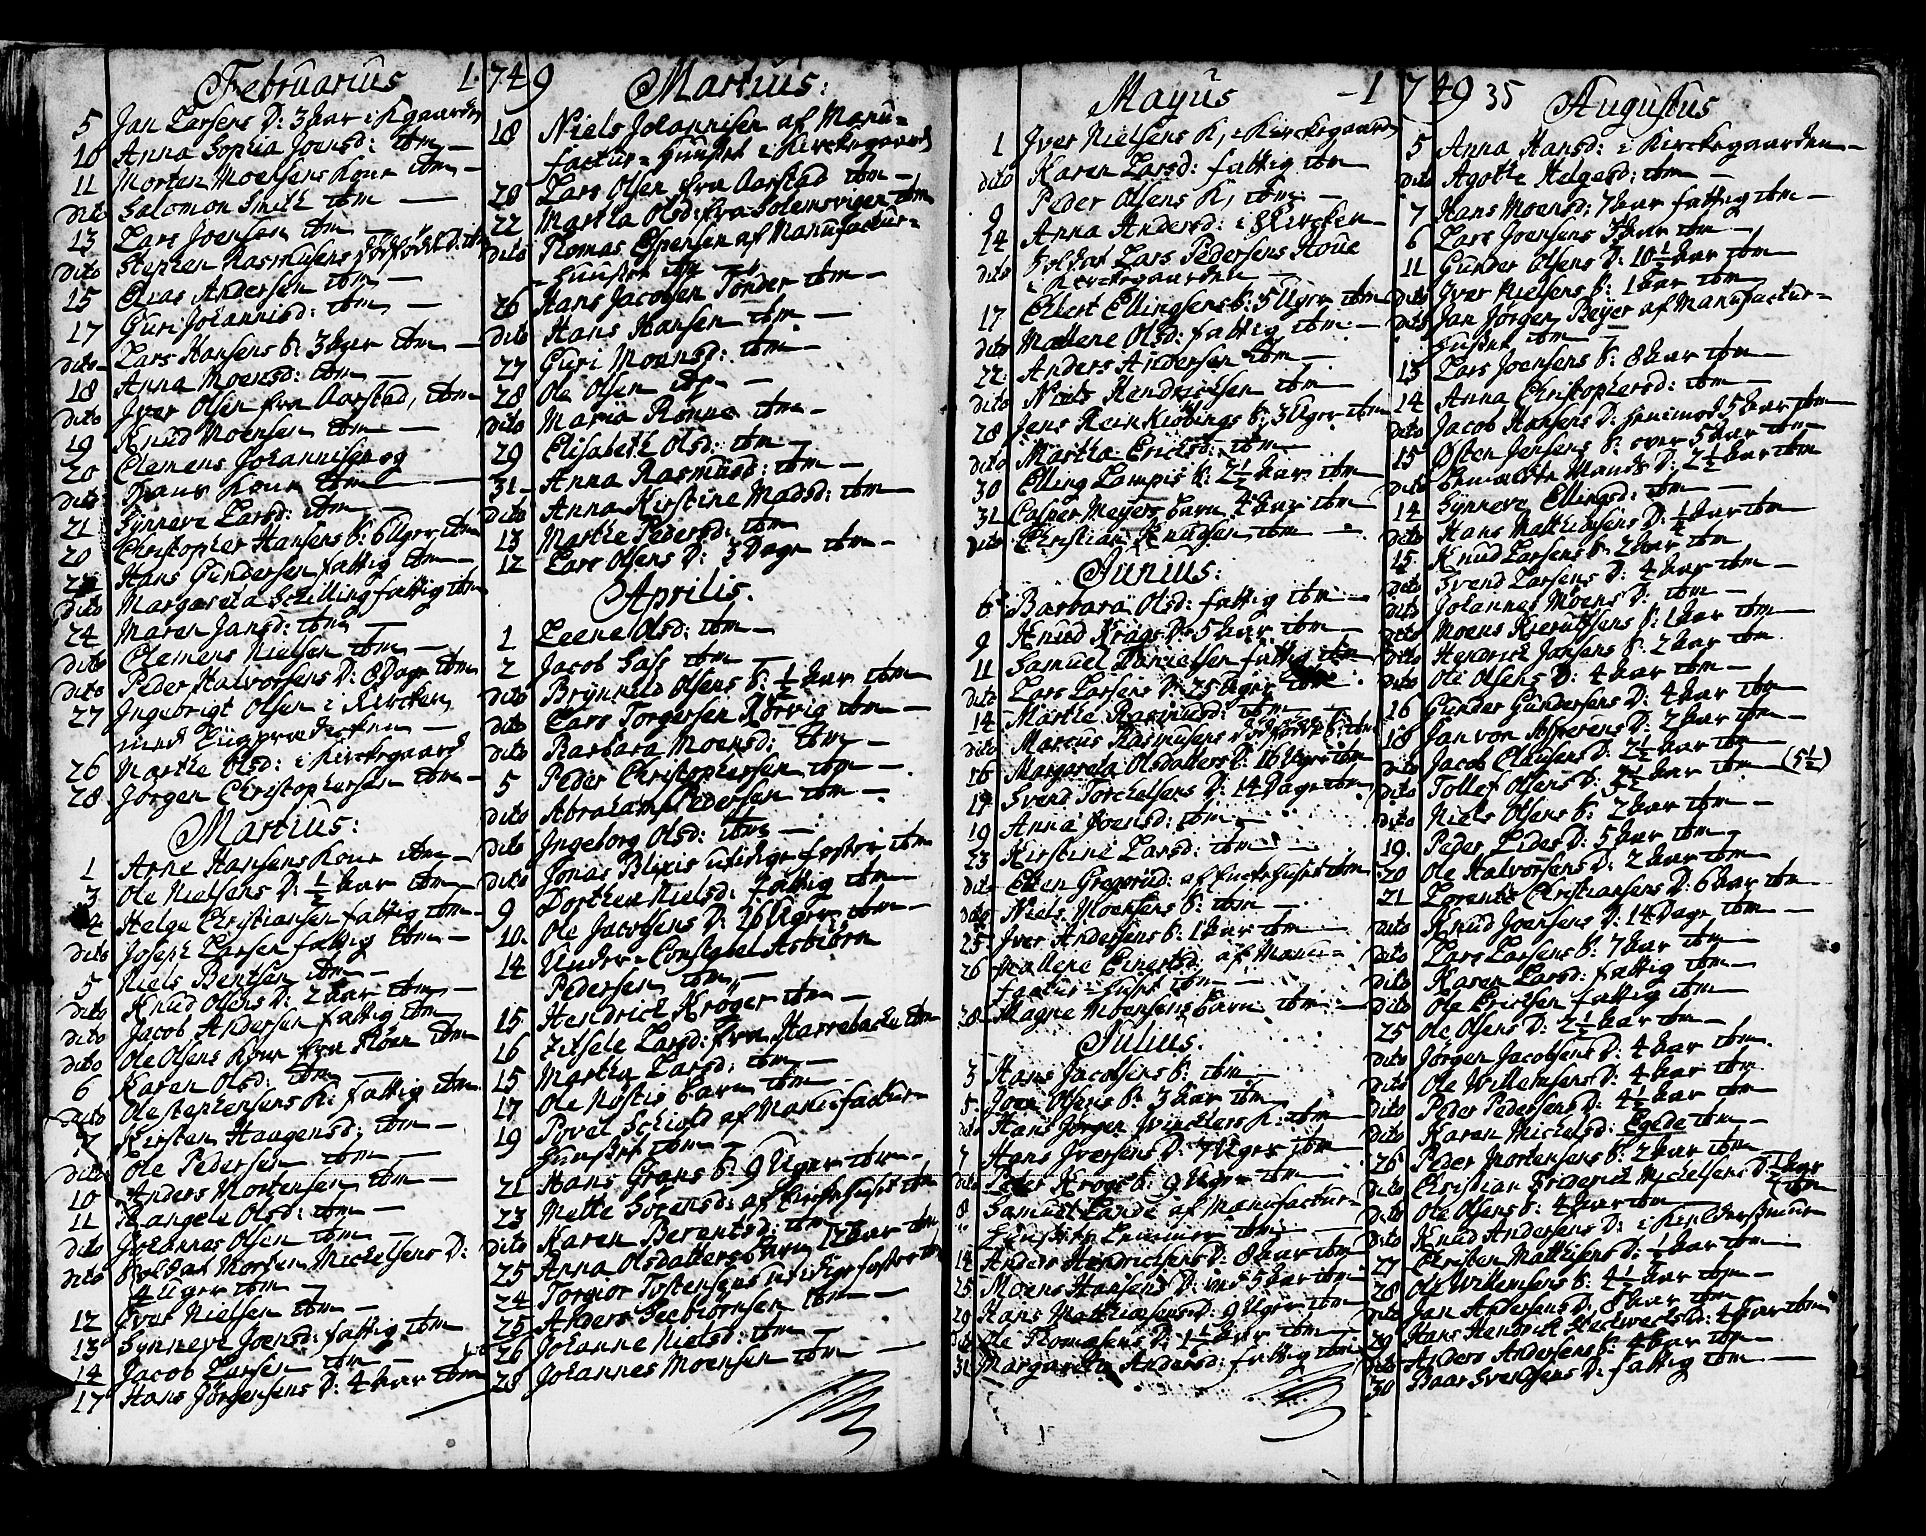 Februarius 1749
5 Jan Larsens D: 3 Aar i Kgaarden
10 Anna Sophia Joensd: ibm
11 Morten Moensens Kone ibm
dito Salomon Smith ibm
13 Lars Joensen ibm
dito Stephen Rasmusens dødfødt D: ibm
15 Elias Andersen ibm
17 Guri Johannisd: ibm
dito Lars Hansens S: 3 Aar ibm
18 Anna Moensd: ibm
dito Iver Olsen fra Aarstad, ibm
19 Knud Moensen ibm
20 Clemens Johannisen og
dito Hans Kone ibm
21 Synneve Larsd: ibm
20 Christopher Hansens S: 6 Uger ibm
Hans Gundersen fattig ibm
dito Margareta Schilling fattig ibm
24 Maren Jansd: ibm
dito Clemens Nielsen ibm
dito Peder Halvorsens D: 8 Dage ibm
27 Ingebrigt Olsen i Kircken
med Liigprædicken
26 Marthe Olsd: i Kirckegaard
28 Jørgen Christophersen ibm
Martius:
1 Arne Hansens Kone ibm
3 Ole Nielsens D: ½ Aar ibm
4 Helge Christiansen fattig ibm
dito Joseph Larsen fattig ibm
5 Niels Bentsen ibm
dito Knud Olsens D: 2 Aar ibm
dito Jacob Andersen fattig ibm
dito Ole Olsens Kone fra ibm
6 Karen Olsd: ibm
dito Ole Stephensens fattig ibm
7 Kirsten Haagensd: ibm
dito Ole Pedersen ibm
10 Anders Mortensen ibm
11 Rangele Olsd: ibm
dito Johannes Olsen ibm
dito Soldat Morten Mickelsens D:
4 Uger ibm
12 Iver Nielsen ibm
13 Synneve Joensd: fattig ibm
14 Jacob Larsen ibm
17 Hans Jørgensens D: 4 Aar ibm
Martius:
18 Niels Johannisen af Manu=
factur=Huuset i Kirckegaard
20 Lars Olsen fra Aarstad ibm
22 Martha Olsd: fra Solemsvigen ibm
dito Thomas Espensen af Manufactur=
Huuset ibm
26 Hans Jacobsen Tønder ibm
dito Hans Hansen ibm
27 Guri Moensd: ibm
28 Ole Olsen ibm
dito Maria Rønne ibm
29 Elisabeth Olsd: ibm
31 Anna Rasmusd: ibm
dito Anna Kirstine Madsd: ibm
13 Marthe Pedersd: ibm
12 Lars Olsens D: 3 Dage ibm
Aprilis.
1 Leene Olsd: ibm
2 Jacob Sass ibm
dito Brynnild Olsens S: ½ Aar ibm
dito Lars Torgersen Rørvig ibm
dito Barbara Moensd: ibm
5 Peder Christophersen ibm
dito Abraham Pedersen ibm
dito Ingeborg Olsd: ibm
dito Jonas Blixis uægte foster ibm
9 Dorthea Nielsd: fattig ibm
10 Ole Jacobsens D: 26 Uger ibm
14 Under=Constabel Asbiørn
Pedersen ibm
15 Hendrick Krøger ibm
16 Zitsele Larsd: fra Harrebacke ibm
15 Martha Larsd: ibm
17 Ole Nøstis barn ibm
19 Povel Schiold af Manufactur=
Huuset ibm
21 Hans Grans S: 9 Uger ibm
23 Mette Sørensd: af ibm
dito Karen Berentsd: ibm
25 Anna Olsdatters barn 12 Aar ibm
24 Torgior Tostensens foster ibm
25 Anders Seebiørnsen ibm
26 Johanne Nielsd: ibm
28 Johannes Moensen ibm
Mayus 1749 35
1 Iver Nielsens K, i Kirckegaard
dito Karen Larsd: fattig ibm
9 Peder Olsens K, ibm
14 Anna Andersd: i Kircken
dito Soldat Lars Pedersens Kone
i Kirckegaarden
17 Ellert Ellingsens S: 5 Uger ibm
dito Mallene Olsd: fattig ibm
22 Anders Andersen ibm
dito Niels Hendricksen ibm
28 Jens Rein Kiøbings S: 3 Uger ibm
dito Martha Ericksd: ibm
30 Elling Lampis S: 2½ Aar ibm
31 Casper Meyers barn 4 Aar ibm
dito Christian Knudsen ibm
Junius:
6 Barbara Olsd: fattig ibm
9 Knud Krags D: 5 Aar ibm
11 Samuel Danielsen fattig ibm
dito Lars Larsens D: 25 Uger ibm
14 Marthe Rasmusd: ibm
dito Marcus Rasmusens dødfødt S: ibm
16 Margareta Olsdatters D: 16 Uger ibm
17 Svend Torckelsens D: 14 Dage ibm
19 Anna Joensd: ibm
23 Kirstine Larsd: ibm
dito Ellen af ibm
dito Niels Moensens S: ibm
25 Iver Andersens S: 1 Aar ibm
26 Mallene Einertsd: af Manu=
factur=Huset ibm
28 Magne Moensens barn ibm
Julius.
3 Hans Jacobsens S: ibm
5 Joen Olsens S: 3 Aar ibm
dito Hans Jørgen Winchlers K: ibm
7 Hans Iversens D: 7 Uger ibm
dito Peter Krogs S: 9 Uger ibm
8 Samuel Lande af Manufactur=
ibm
14 Anders Hendricksens D: 8 Aar ibm
25 Moens Hansens D: 5 Aar ibm
29 Hans Matthiasens D: 9 Uger ibm
dito Ole Thomasens D: 1½ Aar ibm
31 Margareta Andersd: fattig ibm
Augustus
5 Anna Hansd: i Kirckegaarden
dito Agothe Helgesd: ibm
7 Hans Moensd: 7 Aar fattig ibm
6 Lars Joensens 3 Aar ibm
11 Gunder Olsens D: 10½ Aar ibm
dito Iver Nielsens S: 1 Aar ibm
dito Jan Jørgen Beyer af Manufactur=
Huset ibm
13 Lars Joensens S: 8 Aar ibm
14 Anna Christophersd: ibm
dito Jacob Hansens D: henimod 5 Aar ibm
15 Østen Jensens S: over 5 Aar ibm
dito bemældte Mands D: 2½ Aar ibm
14 Synneve Ellingsd: ibm
dito Hans Matthiasens D: ½ Aar ibm
15 Knud Larsens S: 2 Aar ibm
dito Svend Larsens D: 4 Aar ibm
dito Johannes Moens D: ibm
dito Moens Knudsens S: 1 Aar ibm
dito Hendrick Jansens S: 2 Aar ibm
dito Ole Olsens D: 4 Aar ibm
16 Gunder Gundersens D: 4 Aar ibm
18 Jan von Asperens D: 2 Aar ibm
dito Jacob Clausens D: 2½ Aar ibm
dito Tollef Olsens D: 5½ Aar ibm (5½)
dito Niels Olsens S: 2 Aar ibm
19. Peder Lides D: 5 Aar ibm
20 Ole Halvorsens D: 2 Aar ibm
21 Lorents Christiansens D: 6 Aar ibm
dito Knud Joensens D: 14 Dage ibm
dito Lars Larsens S: 7 Aar ibm
dito Karen Larsd: fattig ibm
dito Ole Ericksen fattig ibm
25 Ole Olsens D: 2½ Aar ibm
dito Jørgen Jacobsens D: 4 Aar ibm
dito Ole Willemsens D: 4 Aar ibm
dito Peder Pedersens D: 4½ Aar ibm
dito Karen Mickelsd: Egede ibm
26 Peder Mortensens S: 2 Aar ibm
dito Christian Friderick Mickelsens D: ½ Aar ibm
dito Ole Olsens S: 4 Aar ibm
dito Knud Andersens D: i
27 Christen Matthisens D: ½ Aar ibm
28 Ole Willemsens S: 4½ Aar ibm
dito Jan Andersens D: 8 Aar ibm
29 Hans Hendrick D: 4 Aar ibm
dito Anders Andersens S: 4 Aar ibm
30 Baar Svendsens D: fattig ibm